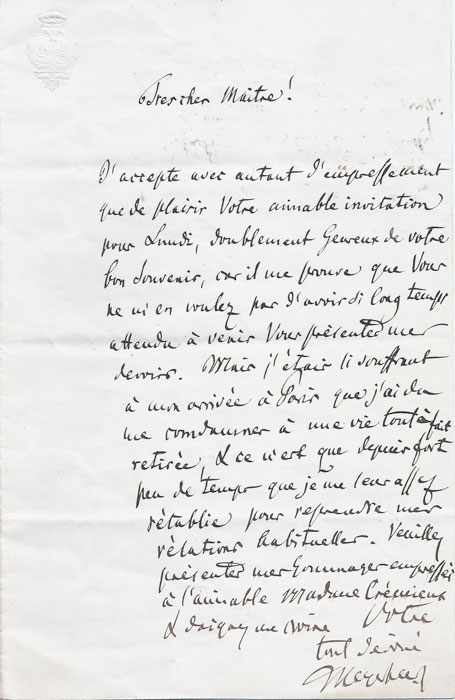 Très cher Maître!
J'accepte avec autant d'empressement
que de plaisir Votre aimable invitation
pour Lundi, doublement heureux de votre
bon souvenir, car il me prouve que Vous
ne m'en voulez pas d'avoir si long temps
attendu à venir Vous présenter mes
devoirs. Mais j'étais si souffrant
à mon arrivée à Paris que j'ai du
me condamner à une vie tout à fait
retirée, & ce n'est que depuis fort
peu de temps que je me sens assez
rétablie pour reprendre mes
rélations habituelles. Veuillez
présenter mes hommages empressés
à l'aimable Madame Crémieux
& daignez me croire Votre
tout dévoué
Meyerbeer